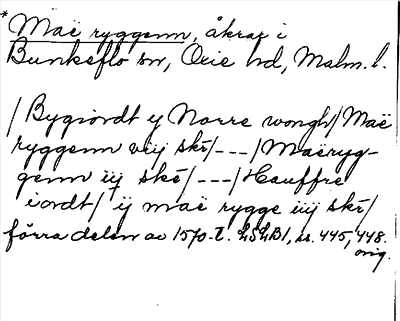 *Maë ryggenn, åkrar i
Bunkeflo sn, Oxie hd, Malm. l.
/Bygiordt y Norre wongh/Maë
ryggenn viij skē/---/Maëryg-
genn iij skē/---/Hauffre
iordt/ ij maë rygge iiij skē/
förra delen av 1570-t. LSLB1, ss. 445, 448.
orig.